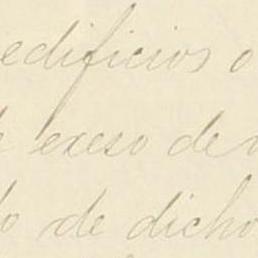 edificios o
exeso de
do de dicho